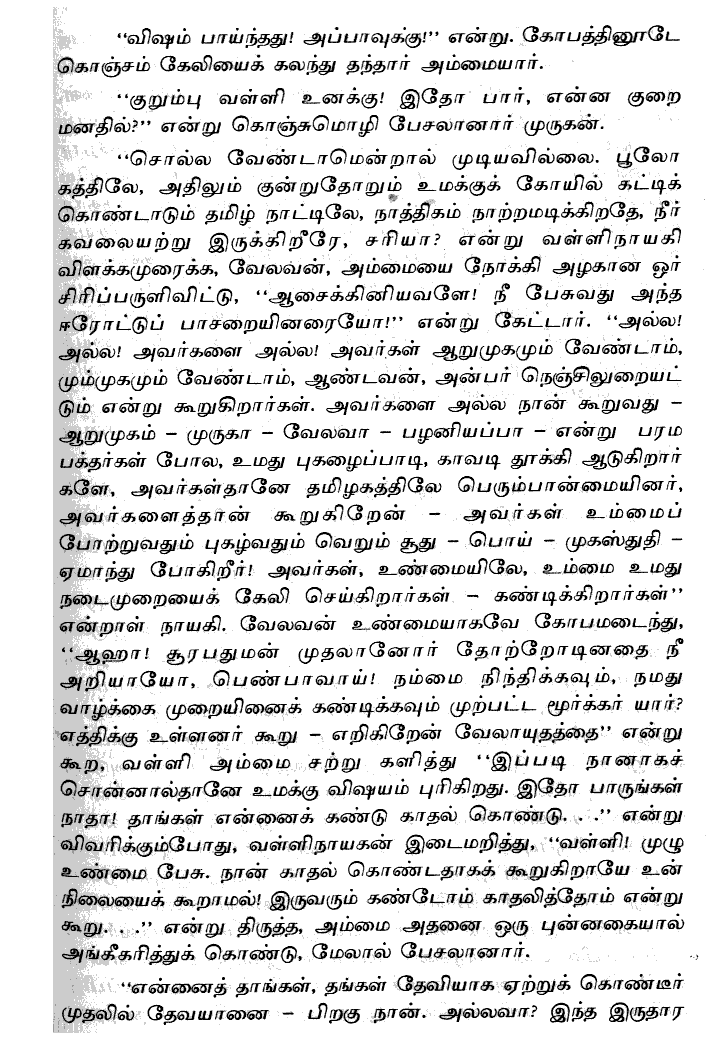 “விஷம் பாய்ந்தது! அப்பாவுக்கு!” என்று. கோபத்தினூடே
கொஞ்சம் கேலியைக் கலந்து தந்தார் அம்மையார்.
“குறும்பு வள்ளி உனக்கு! இதோ பார், என்ன குறை
மனதில்?” என்று கொஞ்சுமொழி பேசலானார் முருகன்.
“சொல்ல வேண்டாமென்றால் முடியவில்லை. பூலோ
கத்திலே, அதிலும் குன்றுதோறும் உமக்குக் கோயில் கட்டிக்
கொண்டாடும் தமிழ் நாட்டிலே, நாத்திகம் நாற்றமடிக்கிறதே, நீர்
கவலையற்று இருக்கிறீரே, சரியா? என்று வள்ளிநாயகி
விளக்கமுரைக்க, வேலவன், அம்மையை நோக்கி அழகான ஓர்
சிரிப்பருளிவிட்டு, “ஆசைக்கினியவளே! நீ பேசுவது அந்த
ஈரோட்டுப் பாசறையினரையோ!” என்று கேட்டார். “அல்ல!
அல்ல! அவர்களை அல்ல! அவர்கள் ஆறுமுகமும் வேண்டாம்,
மும்முகமும் வேண்டாம், ஆண்டவன், அன்பர் நெஞ்சிலுறையட்
டும் என்று கூறுகிறார்கள். அவர்களை அல்ல நான் கூறுவது –
ஆறுமுகம் – முருகா – வேலவா – பழனியப்பா – என்று பரம
பக்தர்கள் போல, உமது புகழைப்பாடி, காவடி தூக்கி ஆடுகிறார்
களே, அவர்கள்தானே தமிழகத்திலே பெரும்பான்மையினர்,
அவர்களைத்தான் கூறுகிறேன் – அவர்கள் உம்மைப்
போற்றுவதும் புகழ்வதும் வெறும் சூது – பொய் – முகஸ்துதி –
ஏமாந்து போகிறீர்! அவர்கள், உண்மையிலே, உம்மை உமது
நடைமுறையைக் கேலி செய்கிறார்கள் – கண்டிக்கிறார்கள்”
என்றாள் நாயகி. வேலவன் உண்மையாகவே கோபமடைந்து,
“ஆஹா! சூரபதுமன் முதலானோர் தோற்றோடினதை நீ
அறியாயோ, பெண்பாவாய்! நம்மை நிந்திக்கவும், நமது
வாழ்க்கை முறையினைக் கண்டிக்கவும் முற்பட்ட மூர்க்கர் யார்?
எத்திக்கு உள்ளனர் கூறு – எறிகிறேன் வேலாயுதத்தை” என்று
கூற, வள்ளி அம்மை சற்று களித்து “இப்படி நானாகச்
சொன்னால்தானே உமக்கு விஷயம் புரிகிறது. இதோ பாருங்கள்
நாதா! தாங்கள் என்னைக் கண்டு காதல் கொண்டு. . .” என்று
விவரிக்கும்போது, வள்ளிநாயகன் இடைமறித்து, “வள்ளி! முழு
உண்மை பேசு. நான் காதல் கொண்டதாகக் கூறுகிறாயே உன்
நிலையைக் கூறாமல்! இருவரும் கண்டோம் காதலித்தோம் என்று
கூறு. . .” என்று திருத்த, அம்மை அதனை ஒரு புன்னகையால்
அங்கீகரித்துக் கொண்டு, மேலால் பேசலானார்.
“என்னைத் தாங்கள், தங்கள் தேவியாக ஏற்றுக் கொண்டீர்
முதலில் தேவயானை – பிறகு நான். அல்லவா? இந்த இருதார